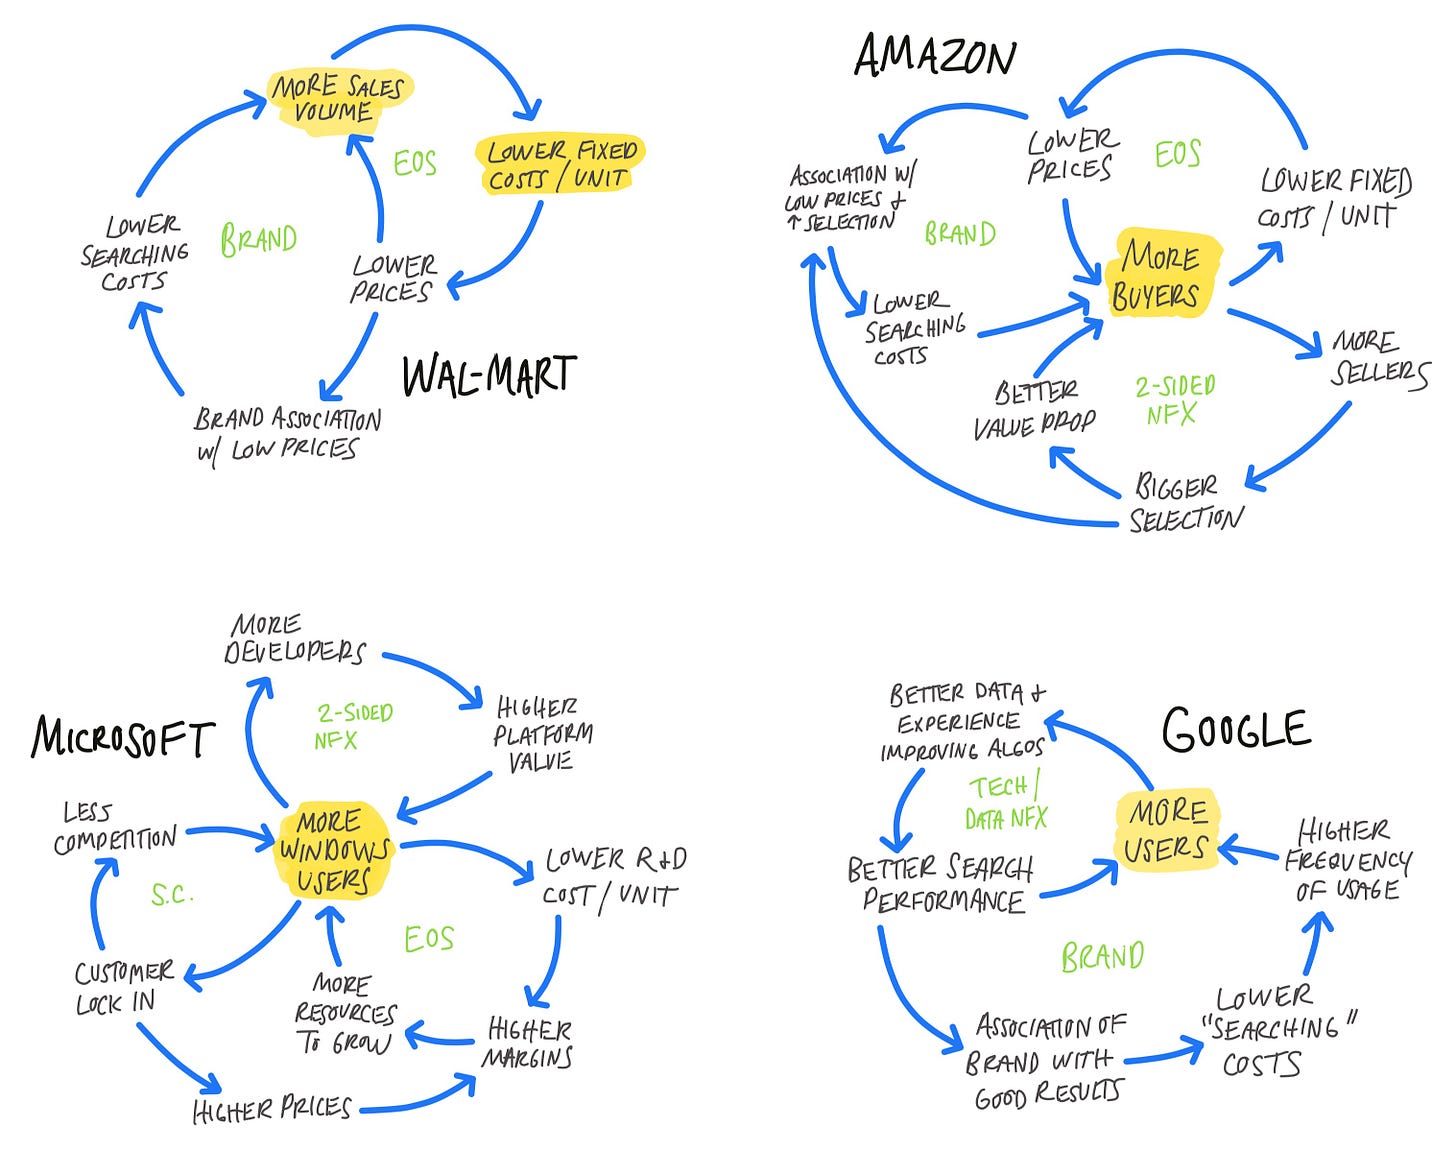 MORE SALES
VOLUME
EOS
LOWER FIXED
COSTS / UNIT
LOWER
SEARCHING
COSTS
BRAND
LOWER
PRICES
WAL-MART
BRAND ASSOCIATION
W/ LOW PRICES
AMAZON
LOWER
PRICES
EOS
ASSOCIATION W/
LOW PRICES +
↑ SELECTION
BRAND
LOWER FIXED
COSTS / UNIT
MORE
BUYERS
LOWER
SEARCHING
COSTS
MORE
SELLERS
BETTER
VALUE PROP
2-SIDED
NFX
BIGGER
SELECTION
MORE
DEVELOPERS
MICROSOFT
2-SIDED
NFX
HIGHER
PLATFORM
VALUE
LESS
COMPETITION
MORE
WINDOWS
USERS
LOWER R+D
COST / UNIT
S.C.
EOS
CUSTOMER
LOCK IN
MORE
RESOURCES
TO GROW
HIGHER
MARGINS
HIGHER PRICES
BETTER DATA +
EXPERIENCE
IMPROVING ALGOS
GOOGLE
TECH /
DATA NFX
MORE
USERS
HIGHER
FREQUENCY
OF USAGE
BETTER SEARCH
PERFORMANCE
BRAND
LOWER
"SEARCHING"
COSTS
ASSOCIATION OF
BRAND WITH
GOOD RESULTS